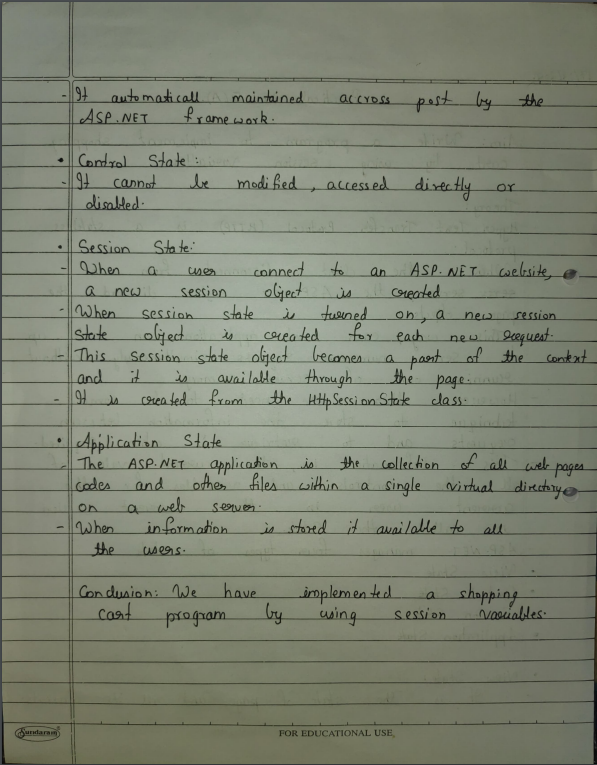 - It automaticall maintained accross post by the
ASP.NET framework.
• Control State:
- It cannot be modified, accessed directly or
disabled.
• Session State:
- When a user connect to an ASP.NET website,
a new session object is created
- When session state is turned on, a new session
state object is created for each new request.
- This session state object becomes a part of the context
and it is available through the page.
- It is created from the HttpSessionState class.
• Application State
- The ASP.NET application is the collection of all web pages
codes and other files within a single virtual directory
on a web server.
- When information is stored it available to all
the users.
Conclusion: We have implemented a shopping
cart program by using session variables.
Sundaram
FOR EDUCATIONAL USE